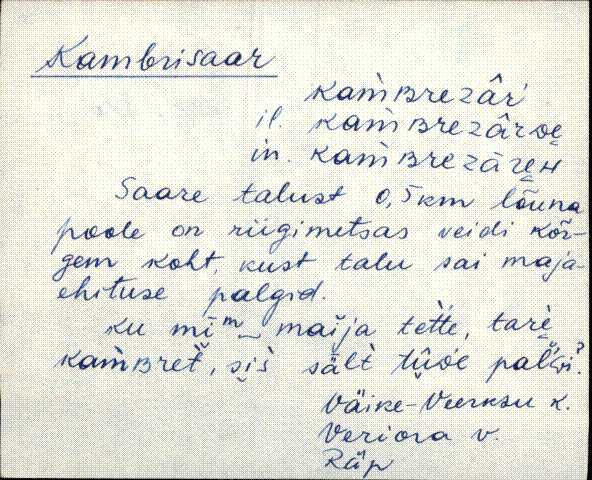 Kambrisaar
kam̀ʙrezâŕ
il. kam̀ʙrezârᴅe
in. kam̀ʙrezāreн
Saare talust 0,5 km lõuna
poole on riigimetsas veidi kõr-
gem koht, kust talu sai maja-
ehituse palgid.
ku mīᵐ maija tet̀te, tarè
kam̀bret, siś säl̀t tûᴅe
Väike-Veerksu k.
Veriora v.
Räp